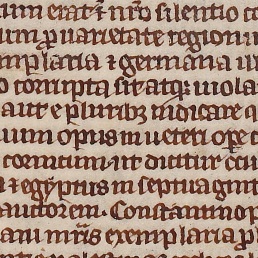 tum erat ⁊ nr̄o silentio co
um ꝓ uarietate regionu
emplaria ⁊ germana ill
o corrupta sit atq; uiola
aut e pluribꝫ iudicare q
uum opus in ueteri ope co
cornicum ut dicitur ocu
⁊ egyptus in septuagint
auctorem. Constantinop
ani mr̄is exemplaria ꝓ